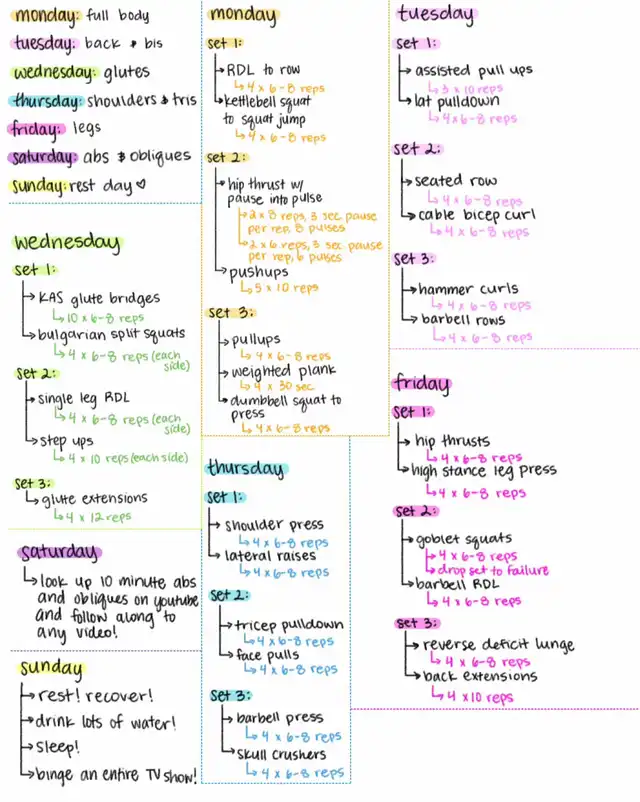 monday: full body
tuesday: back & bis
wednesday: glutes
thursday: shoulders & tris
friday: legs
saturday: abs & obliques
sunday: rest day ♡
monday
set 1:
RDL to row
4 x 6-8 reps
kettlebell squat
to squat jump
4 x 6-8 reps
set 2:
hip thrust w/
pause into pulse
2 x 8 reps, 3 sec pause
per rep, 8 pulses
2 x 6 reps, 3 sec pause
per rep, 6 pulses
pushups
5 x 10 reps
set 3:
pullups
4 x 6-8 reps
weighted plank
4 x 30 sec
dumbbell squat to
press
4 x 6-8 reps
tuesday
set 1:
assisted pull ups
3 x 10 reps
lat pulldown
4 x 6-8 reps
set 2:
seated row
4 x 6-8 reps
cable bicep curl
4 x 6-8 reps
set 3:
hammer curls
4 x 6-8 reps
barbell rows
4 x 6-8 reps
wednesday
set 1:
KAS glute bridges
10 x 6-8 reps
bulgarian split squats
4 x 6-8 reps (each
side)
set 2:
single leg RDL
4 x 6-8 reps (each
side)
step ups
4 x 10 reps (each side)
set 3:
glute extensions
4 x 12 reps
thursday
set 1:
shoulder press
4 x 6-8 reps
lateral raises
4 x 6-8 reps
set 2:
tricep pulldown
4 x 6-8 reps
face pulls
4 x 6-8 reps
set 3:
barbell press
4 x 6-8 reps
skull crushers
4 x 6-8 reps
friday
set 1:
hip thrusts
4 x 6-8 reps
high stance leg press
4 x 6-8 reps
set 2:
goblet squats
4 x 6-8 reps
drop set to failure
barbell RDL
4 x 6-8 reps
set 3:
reverse deficit lunge
4 x 6-8 reps
back extensions
4 x 10 reps
saturday
look up 10 minute abs
and obliques on youtube
and follow along to
any video!
sunday
rest! recover!
drink lots of water!
sleep!
binge an entire TV show!